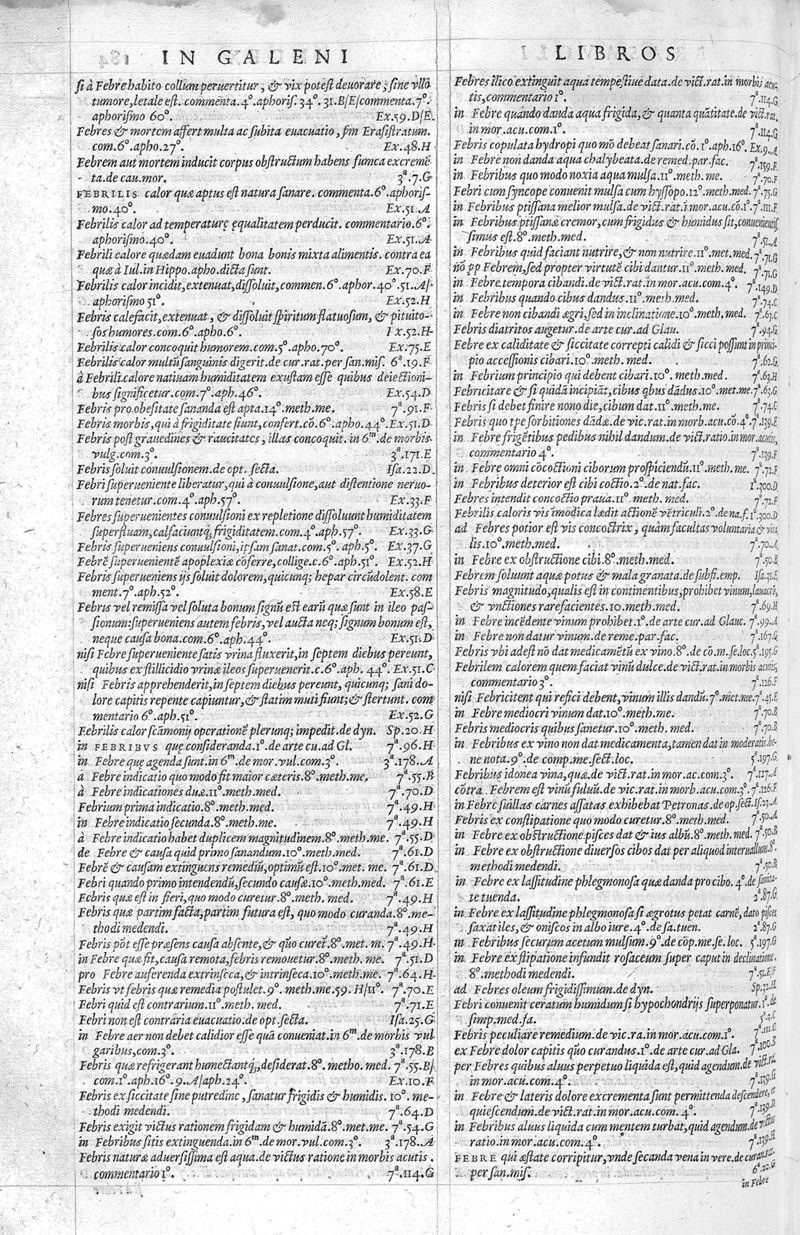 IN GALENI
si à Febre habito collum peruertitur, & vix potest deuorare; sine vllo
tumore, letale est. commenta.4°.aphoris. 34°. 31.B/E/commenta.7°.
aphorismo 60°. Ex.59.D/E.
Febres & mortem affert multa ac subita euacuatio, ſm Erasistratum.
com.6°.apho.27°. Ex.48.H
Febrem aut mortem inducit corpus obstructum habens fumea excremē
ta.de cau.mor. 3ª.7.G
FEBRILIS calor quæ aptus est natura sanare. commenta.6°.aphoris-
mo.40°. Ex.51.A
Febrilis calor ad temperaturę ęqualitatem perducit. commentario.6°.
aphorismo.40°. Ex.51.A
Febrili calore quædam euadunt bona bonis mixta alimentis. contra ea
quæ à Iul.in Hippo.apho.dicta sunt. Ex.70.F
Febrilis calor incidit, extenuat, dissoluit, commen.6°.aphor.40°.51.A/
aphorismo 51°. Ex.52.H
Febris calefacit, extenuat, & dissoluit spiritum flatuosum, & pituito-
sos humores.com.6°.apho.6°. Ex.52.H
Febrilis calor concoquit humorem.com.5°.apho.70°. Ex.75.E
Febrilis calor multū sanguinis digerit.de cur.rat.per san.mis. 6ª.19.F
à Febrili calore natiuam humiditatem exustam esse quibus deiectioni-
bus significetur.com.7°.aph.46°. Ex.54.D
Febris pro obesitate sananda est apta.14°.meth.me. 7ª.91.F
Febris morbis, qui à frigiditate fiunt, confert.cō.6°.apho.44°.Ex.51.D
Febris post grauedines & raucitates, illas concoquit. in 6m.de morbis.
vulg.com.3°. 3ª.171.E
Febris soluit conuulsionem.de opt. secta. Isa.22.D
Febri superueniente liberatur, qui à conuulsione, aut distentione neruo-
rum tenetur.com.4°.aph.57°. Ex.33.F
Febres superuenientes conuulsioni ex repletione dissoluunt humiditatem
superfluam, calfaciuntq; frigiditatem.com.4°.aph.57°. Ex.33.G
Febris superueniens conuulsioni, ipsam sanat.com.5°.aph.5°. Ex.37.G
Febrē superuenientē apoplexiæ cōferre, collige.c.6°.aph.51°. Ex.52.H
Febris superueniens ijs soluit dolorem, quicunq; hepar circūdolent. com
ment.7°.aph.52°. Ex.58.E
Febris vel remissa vel soluta bonum signū est earū quæ sunt in ileo pas-
sionum: superueniens autem febris, vel aucta neq; signum bonum est,
neque causa bona.com.6°.aph.44°. Ex.51.D
nisi Febre superueniente satis vrina fluxerit, in septem diebus pereunt,
quibus ex stillicidio vrinæ ileos superuenerit.c.6°.aph. 44°. Ex.51.C
nisi Febris apprehenderit, in septem diebus pereunt, quicunq; sani do-
lore capitis repente capiuntur, & statim muti fiunt; & stertunt. com
mentario 6°.aph.51°. Ex.52.G
Febrilis calor scāmonij operationē plerunq; impedit.de dyn. Sp.20.H
in FEBRIBVS quę consideranda.1°.de arte cu.ad Gl. 7ª.96.H
in Febre quę agenda sunt.in 6m.de mor.vul.com.3°. 3ª.178.A
à Febre indicatio quo modo fit maior cæteris.8°.meth.me. 7ª.55.B
à Febre indicationes duæ.11°.meth.med. 7ª.70.D
Febrium prima indicatio.8°.meth.med. 7ª.49.H
in Febre indicatio secunda.8°.meth.me. 7ª.49.H
à Febre indicatio habet duplicem magnitudinem.8°.meth.me. 7ª.55.D
de Febre & causa quid primo sanandum.10°.meth.med. 7ª.61.D
Febrē & causam extinguens remediū, optimū est.10°.met. me. 7ª.61.D
Febri quando primo intendendū, secundo causæ.10°.meth.med. 7ª.61.E
Febris quæ est in fieri, quo modo curetur.8°.meth. med. 7ª.49.H
Febris quæ partim facta, partim futura est, quo modo curanda.8°.me-
thodi medendi. 7ª.49.H
Febris pōt esse præsens causa absente, & quō curet͞.8°.met. m. 7ª.49.H
in Febre quæ fit, causa remota, febris remouetur.8°.meth. me. 7ª.51.D
pro Febre auferenda extrinseca, & intrinseca.10°.meth.me. 7ª.64.H
Febris vt febris quæ remedia postulet.9°. meth.me.59.H/11°. 7ª.70.E
Febri quid est contrarium.11°.meth. med. 7ª.71.E
Febri non est contraria euacuatio.de opt.secta. Isa.25.G
in Febre aer non debet calidior esse quā conueniat.in 6m.de morbis vul
garibus,com.3°. 3ª.178.E
Febris quæ refrigerant humectantq; desiderat.8°. metho. med. 7ª.55.E/
com.1°.aph.16°.9.A/aph.24°. Ex.10.F
Febris ex siccitate sine putredine, sanatur frigidis & humidis. 10°.me-
thodi medendi. 7ª.64.D
Febris exigit victus rationem frigidam & humidā.8°.met.me. 7ª.54.G
in Febribus sitis extinguenda.in 6m.de mor.vul.com.3°. 3ª.178.A
Febris naturæ aduersissima est aqua.de victus ratione in morbis acutis.
commentario 1°. 7ª.114.G
LIBROS
Febres ilico extinguit aqua tempestiue data.de vict.rat.in morbis acu-
tis,commentario 1°. 7ª.114.G
in Febre quando danda aqua frigida, & quanta quātitate.de vict.rat.
in mor.acu.com.1°. 7ª.114.G
Febris copulata hydropi quo mō debeat sanari.cō.1°.aph.16°. Ex.9.A
in Febre non danda aqua chalybeata.de remed.par.fac. 7ª.159.F
in Febribus quo modo noxia aqua mulsa.11°.meth.me. 7ª.70.F
Febri cum syncope conuenit mulsa cum hyssopo.12°.meth.med. 7ª.75.G
in Febribus ptissana melior mulsa.de vict.rat.i mor.acu.cō.1°.7ª.111.F
in Febribus ptissanæ cremor, cum frigidus & humidus sit, conuenientis-
simus est.8°.meth.med. 7ª.51.A
in Febribus quid faciant nutrire, & non nutrire.11°.met.med. 7ª.71.G
nō ꝓꝑ Febrem, sed propter virtutē cibi dantur.11°.meth.med. 7ª.71.G
in Febre tempora cibandi.de vict.rat.in mor.acu.com.4°. 7ª.149.D
in Febribus quando cibus dandus.11°.meth.med. 7ª.74.C
in Febre non cibandi ægri, sed in inclinatione.10°.meth.med. 7ª.67.C
Febris diatritos augetur.de arte cur.ad Glau. 7ª.94.G
Febre ex caliditate & siccitate correpti calidi & sicci possunt in princi-
pio accessionis cibari.10°.meth. med. 7ª.62.G
in Febrium principio qui debent cibari.10°.meth.med. 7ª.63.H
Febricitare & si quidā incipiāt, cibus qbus dādus.10°.met.me.7ª.63.G
Febris si debet finire nono die, cibum dat.11°.meth.me. 7ª.74.C
Febris quo tpe sorbitiones dādæ.de vic.rat.in morb.acu.cō.4°.7ª.139.E
in Febre frigētibus pedibus nihil dandum.de vict.ratio.in mor.acutis,
commentario 4°. 7ª.139.E
in Febre omni cōcoctioni ciborum prospiciendū.11°.meth.me. 7ª.71.F
in Febribus deterior est cibi coctio.2°.de nat.fac. 1ª.300.D
Febres intendit concoctio praua.11°.meth. med. 7ª.71.F
Febrilis caloris vis modica lædit actionē vētriculi.2°.de na.f.1ª.300.D
ad Febres potior est vis concoctrix, quàm facultas voluntaria & vita
lis.10°.meth.med. 7ª.70.A
in Febre ex obstructione cibi.8°.meth.med. 7ª.50.B
Febrem soluunt aquæ potus & mala granata.de subfi.emp. Isa.31.E
Febris magnitudo, qualis est in continentibus, prohibet vinum, lauacrū,
& vnctiones rarefacientes.10.meth.med. 7ª.69.H
in Febre incēdente vinum prohibet.1°.de arte cur.ad Glauc. 7ª.99.A
in Febre non datur vinum.de reme.par.fac. 7ª.167.G
Febris vbi adest nō dat medicamētū ex vino.8°.de cō.m.se.loc.5ª.195.G
Febrilem calorem quem faciat vinū dulce.de vict.rat.in morbis acutis,
commentario 3°. 7ª.126.F
nisi Febricitent qui refici debent, vinum illis dandū.7°.met.me.7ª.45.E
in Febre mediocri vinum dat.10°.meth.me. 7ª.70.B
Febris mediocris quibus sanetur.10°.meth.med. 7ª.70.B
in Febribus ex vino non dat medicamenta, tamen dat in moderatis bo-
ne nota.9°.de comp.me.sect.loc. 5ª.197.G
Febribus idonea vina, quæ.de vict.rat.in mor.ac.com.3°. 7ª.127.A
cōtra Febrem est vinū fuluū.de vic.rat.in morb.acu.com.3°. 7ª.126.F
in Febre suillas carnes assatas exhibebat Petronas.de op.sect.Isa.23.A
Febris ex constipatione quo modo curetur.8°.meth.med. 7ª.50.A
in Febre ex obstructione pisces dat & ius albū.8°.meth.med. 7ª.50.B
in Febre ex obstructione diuersos cibos dat per aliquod interuallum.8°.
methodi medendi. 7ª.50.B
in Febre ex lassitudine phlegmonosa quæ danda pro cibo. 4°.de sanita-
te tuenda. 2ª.87.G
in Febre ex lassitudine phlegmonosa si ægrotus petat carnē, dato pisces
saxatiles, & oniscos in albo iure.4°.de sa.tuen. 2ª.87.G
in Febribus securum acetum mulsum.9°.de cōp.me.se.loc. 5ª.197.G
in Febre ex stipatione infundit rosaceum super caput in declinatione.
8°.methodi medendi. 7ª.51.E/F
ad Febres oleum frigidissimum.de dyn. Sp.32.H
Febri conuenit ceratum humidum si hypochondrijs superponatur.1°.de
simp.med.fa.
Febris peculiare remedium.de vic.ra.in mor.acu.com.1°. 7ª.111.G
ex Febre dolor capitis quō curandus.1°.de arte cur.ad Gla. 7ª.100.B
per Febres quibus aluus perpetuo liquida est, quid agendum.de vict.ra.
in mor.acu.com.4°. 7ª.139.G
in Febre & lateris dolore excrementa sunt permittenda descendere, &
quiescendum.de vict.rat.in mor.acu.com. 4°. 7ª.139.D
in Febribus aluus liquida cum mentem turbat, quid agendum.de victus
ratio.in mor.acu.com.4°. 7ª.139.H
FEBRE qui æstate corripitur, vnde secanda vena in vere.de curan.ra.
per san.mis. 6ª.20.G
in Febre